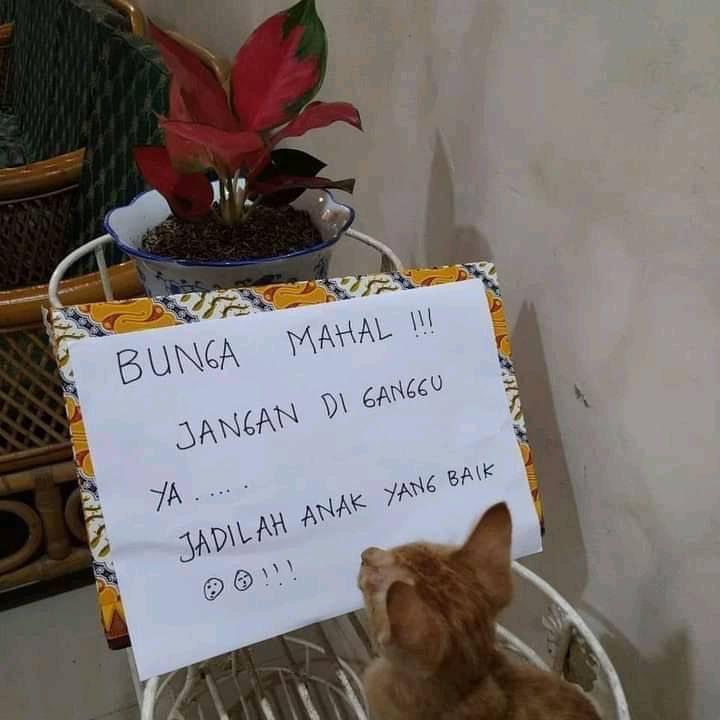 BUNGA MAHAL !!!
JANGAN DI GANGGU
YA .....
JADILAH ANAK YANG BAIK
!!!